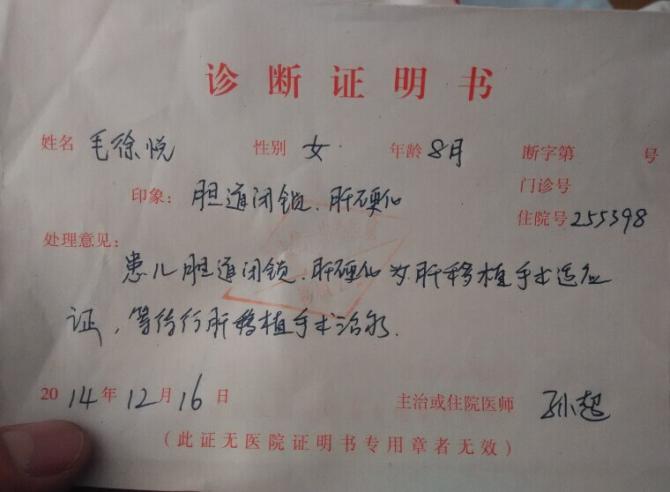 诊断证明书
姓名 毛徐悦 性别 女 年龄 8月 断字第 号
门诊号
印象: 胆道闭锁、肝硬化
住院号 255398
处理意见:
患儿胆道闭锁、肝硬化为肝移植手术适应
证,等待行肝移植手术治疗.
2014年12月16日 主治或住院医师 孙超
(此证无医院证明书专用章者无效)